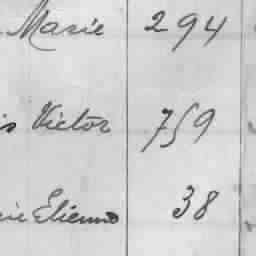 Marie 294
is Victor 759
rie Etienne 38